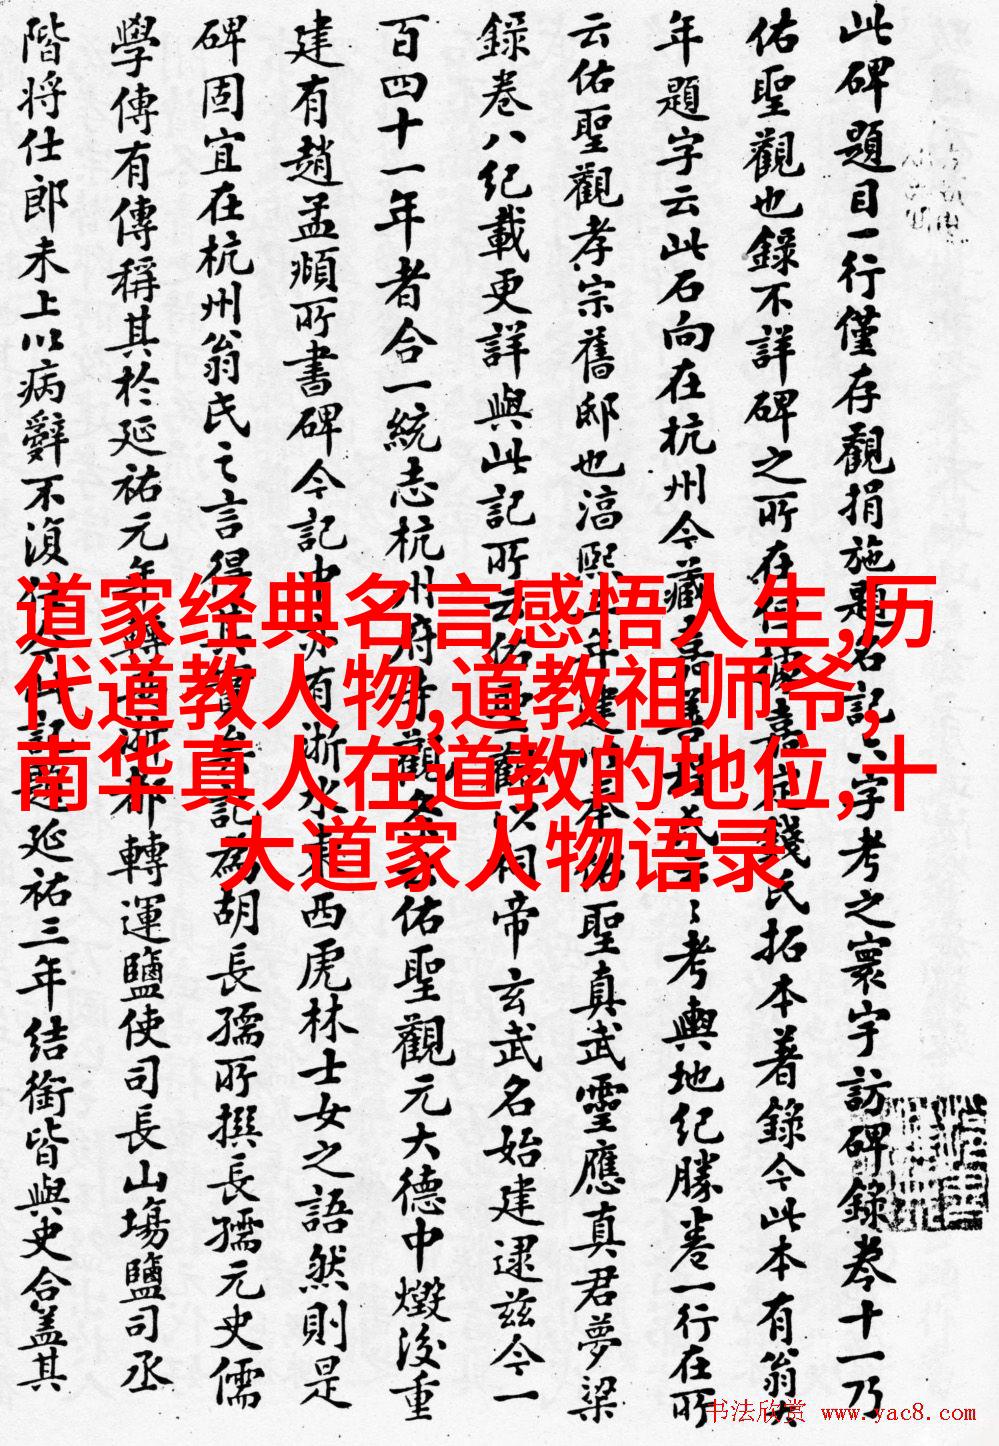 此碑題目一行僅存觀捐施題名記六字考之寰宇訪碑錄卷十一乃
佑聖觀也錄不詳碑之所在但據嘉定錢氏拓本著錄今此本有翁大
年題字云此石向在杭州今藏嘉善氏考輿地紀勝卷一行在所
云佑聖觀孝宗舊邸也淳熙年建以奉佑聖真武靈應真君夢梁
錄卷八紀載更詳與此記所云佑聖觀以祠帝玄武名始建逮茲今一
百四十一年者合一統志杭州府寺觀佑聖觀元大德中燬後重
建有趙孟頫所書碑今記中亦有浙水東西虎林士女之語然則是
碑固宜在杭州翁氏之言得其實矣記為胡長孺所撰長孺元史儒
學傳有傳稱其於延祐元年轉兩浙都轉運鹽使司長山場鹽司丞
階將仕郎未上以病辭不復仕今記題延祐三年結銜皆與史合蓋其
道家经典名言感悟人生,历
代道教人物,道教祖师爷,
南华真人在道教的地位,十
大道家人物语录
书法欣赏 www.yac8.com